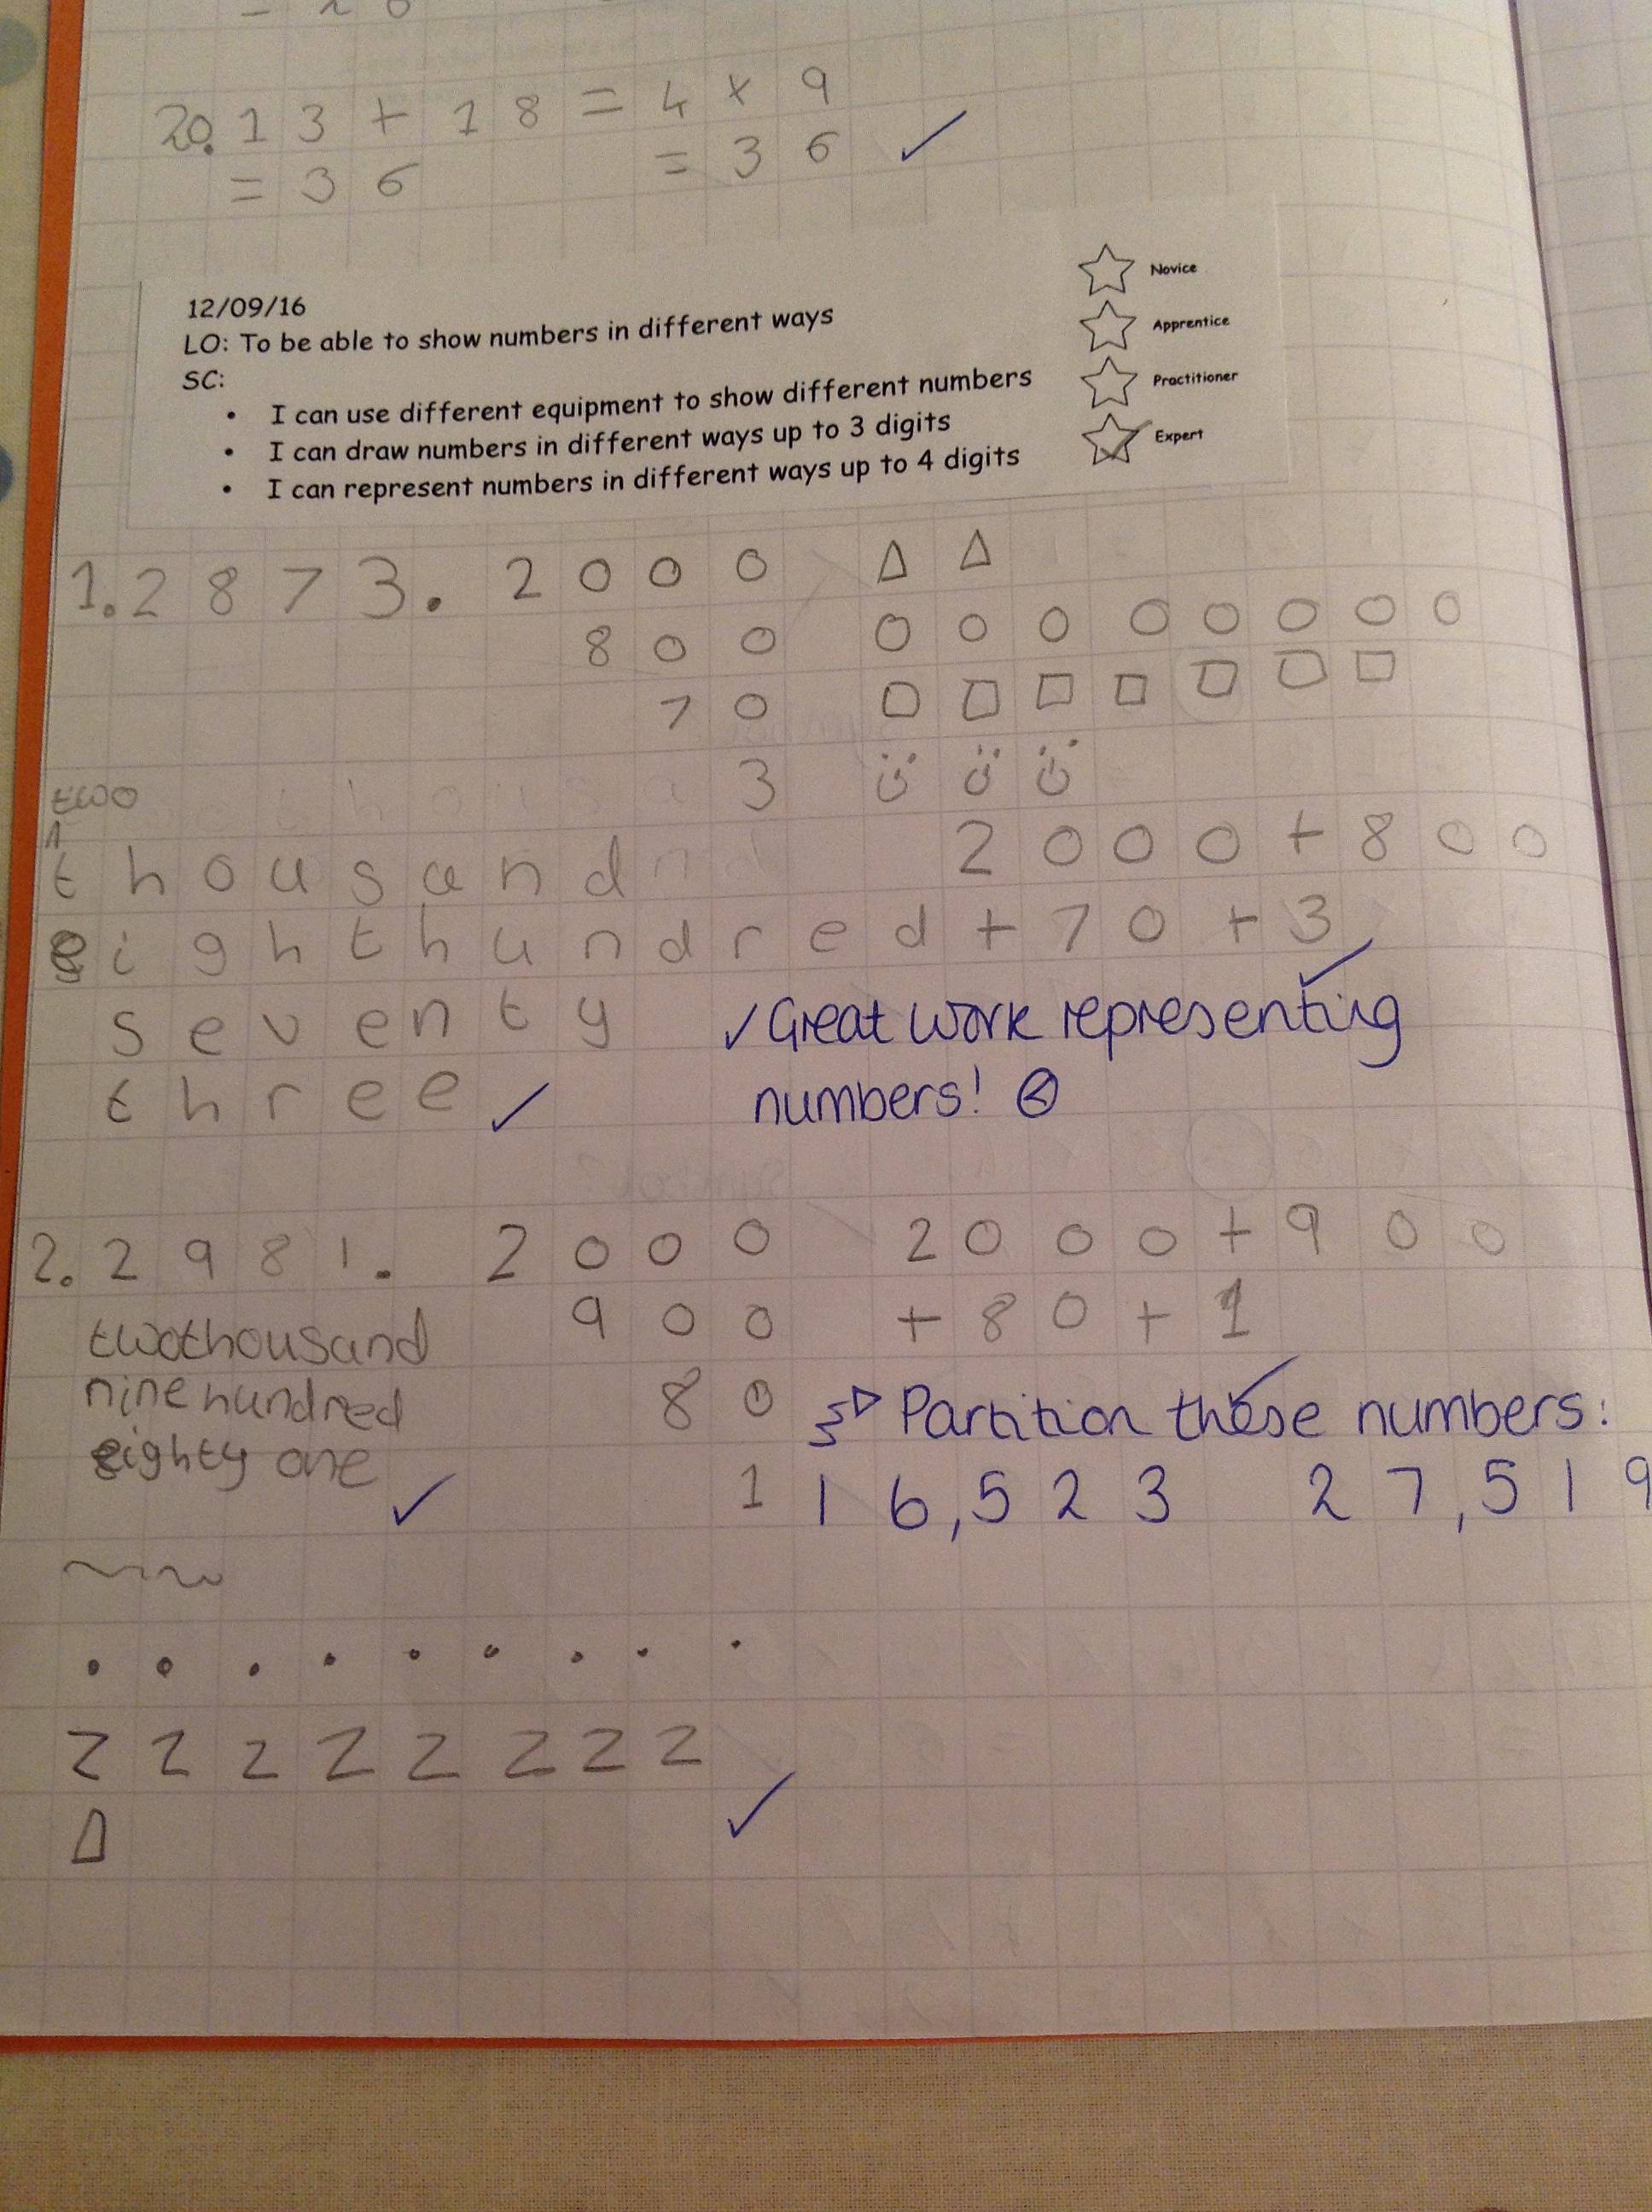 20. 13 + 18 = 4 x 9
= 36 = 36 ✓
12/09/16
LO: To be able to show numbers in different ways
SC:
• I can use different equipment to show different numbers
• I can draw numbers in different ways up to 3 digits
• I can represent numbers in different ways up to 4 digits
Novice
Apprentice
Practitioner
Expert
1. 2873. 2000
800
70
3
two
thousand 2000 + 800
eight hundred + 70 + 3
seventy ✓ Great work representing
three ✓ numbers! ☺
2. 2981. 2000 2000 + 900
twothousand 900 + 80 + 1
nine hundred 80 Partition these numbers:
eighty one ✓ 1 16,523 27,519